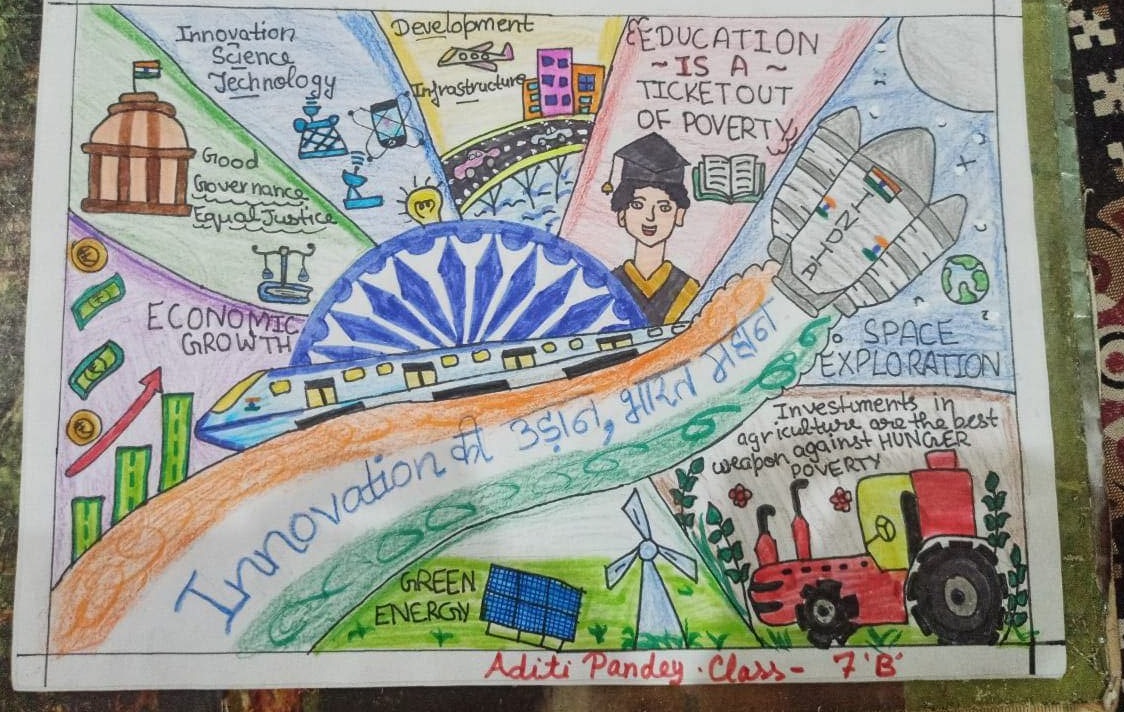 Innovation
Science
Technology
Development
Infrastructure
EDUCATION
~ IS A ~
TICKET OUT
OF POVERTY
Good
Governance
Equal Justice
ECONOMIC
GROWTH
INDIA
SPACE
EXPLORATION
Innovation की उड़ान, भारत महान
Investments in
agriculture are the best
weapon against HUNGER
POVERTY
GREEN
ENERGY
Aditi Pandey. Class - 7 'B'